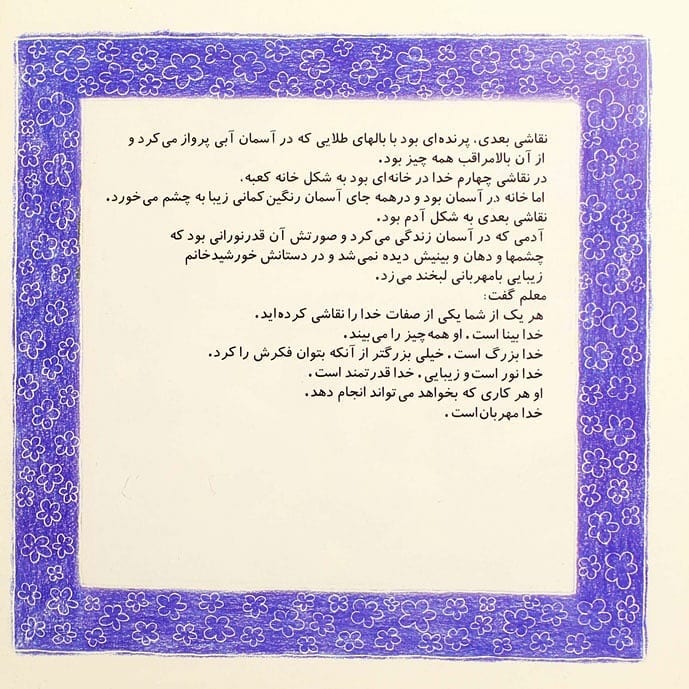 نقاشی بعدی، پرنده‌ای بود با بالهای طلایی که در آسمان آبی پرواز می‌کرد و
از آن بالامراقب همه چیز بود.
در نقاشی چهارم خدا در خانه‌ای بود به شکل خانه کعبه.
اما خانه در آسمان بود و درهمه جای آسمان رنگین‌کمانی زیبا به چشم می‌خورد.
نقاشی بعدی به شکل آدم بود.
آدمی که در آسمان زندگی می‌کرد و صورتش آن قدرنورانی بود که
چشمها و دهان و بینیش دیده نمی‌شد و در دستانش خورشیدخانم
زیبایی بامهربانی لبخند می‌زد.
معلم گفت:
هر یک از شما یکی از صفات خدا را نقاشی کرده‌اید.
خدا بینا است. او همه چیز را می‌بیند.
خدا بزرگ است. خیلی بزرگتر از آنکه بتوان فکرش را کرد.
خدا نور است و زیبایی. خدا قدرتمند است.
او هر کاری که بخواهد می‌تواند انجام دهد.
خدا مهربان‌است.